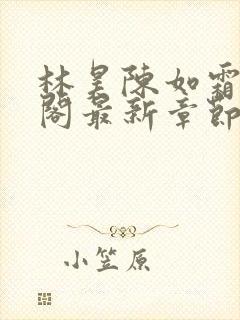 林昊陳如霜
閣最新章節
小笠原